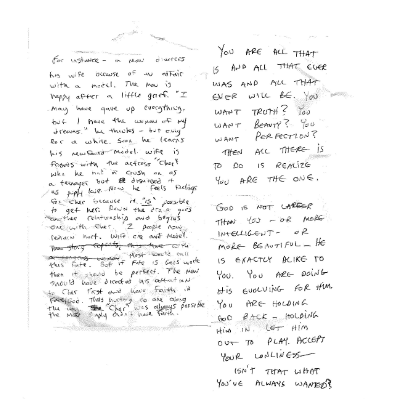 For instance - a man divorces
his wife because of an affair
with a model. The man is
happy after a little grief. "I
may have gave up everything,
but I have the woman of my
dreams." he thinks - but only
for a while. Soon he learns
his model wife is
friends with the actress "Cher"
who he had a crush on as
a teenager but it as
Now he feels feelings
for Cher because it "is" possible
to get her. Down the drain goes
another relationship and begins
one with Cher. 2 people now
hurt. Wife one and Model.
Most would call
this Fate. But if Fate is God's work
then it should be perfect. The man
should have directed his attention
to Cher first and have faith in
hurting no one along
the "Cher" was always possible
the man didn't have faith.
YOU ARE ALL THAT
IS AND ALL THAT EVER
WAS AND ALL THAT
EVER WILL BE. YOU
WANT TRUTH? YOU
WANT BEAUTY? YOU
WANT PERFECTION?
THEN ALL THERE IS
TO DO IS REALIZE
YOU ARE THE ONE.
GOD IS NOT LARGER
THAN YOU - OR MORE
INTELLIGENT - OR
MORE BEAUTIFUL - HE
IS EXACTLY ALIKE TO
YOU. YOU ARE DOING
HIS EVOLVING FOR HIM
YOU ARE HOLDING
GOD BACK - HOLDING
HIM IN. LET HIM
OUT TO PLAY. ACCEPT
YOUR LONLINESS -
ISN'T THAT WHAT
YOU'VE ALWAYS WANTED?